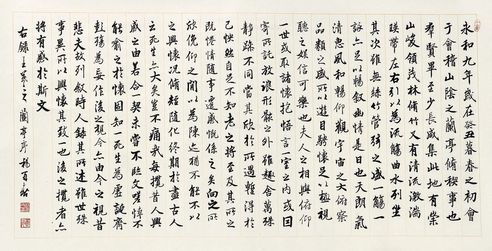 永和九年歲在癸丑暮春之初會
于會稽山陰之蘭亭脩稧事也
群賢畢至少長咸集此地有崇
山峻領茂林脩竹又有清流激湍
暎帶左右引以為流觴曲水列坐
其次雖無絲竹管弦之盛一觴一
詠亦足以暢敘幽情是日也天朗氣
清惠風和暢仰觀宇宙之大俯察
品類之盛所以遊目騁懷足以極視
聽之娛信可樂也夫人之相與俯仰
一世或取諸懷抱悟言一室之內或因
寄所託放浪形骸之外雖趣舍萬殊
靜躁不同當其欣於所遇暫得於
己怏然自足不知老之將至及其所之
既惓情隨事遷感慨係之矣向之所
欣俛仰之間以為陳迹猶不能不以
之興懷況脩短隨化終期於盡古人
云死生亦大矣豈不痛哉每攬昔人興
感之由若合一契未嘗不臨文嗟悼不
能喻之於懷固知一死生為虛誕齊
彭殤為妄作後之視今亦由今之視昔
悲夫故列敘時人錄其所述雖世殊
事異所以興懷其致一也後之攬者亦
將有感於斯文
右錄王羲之蘭亭序楊百